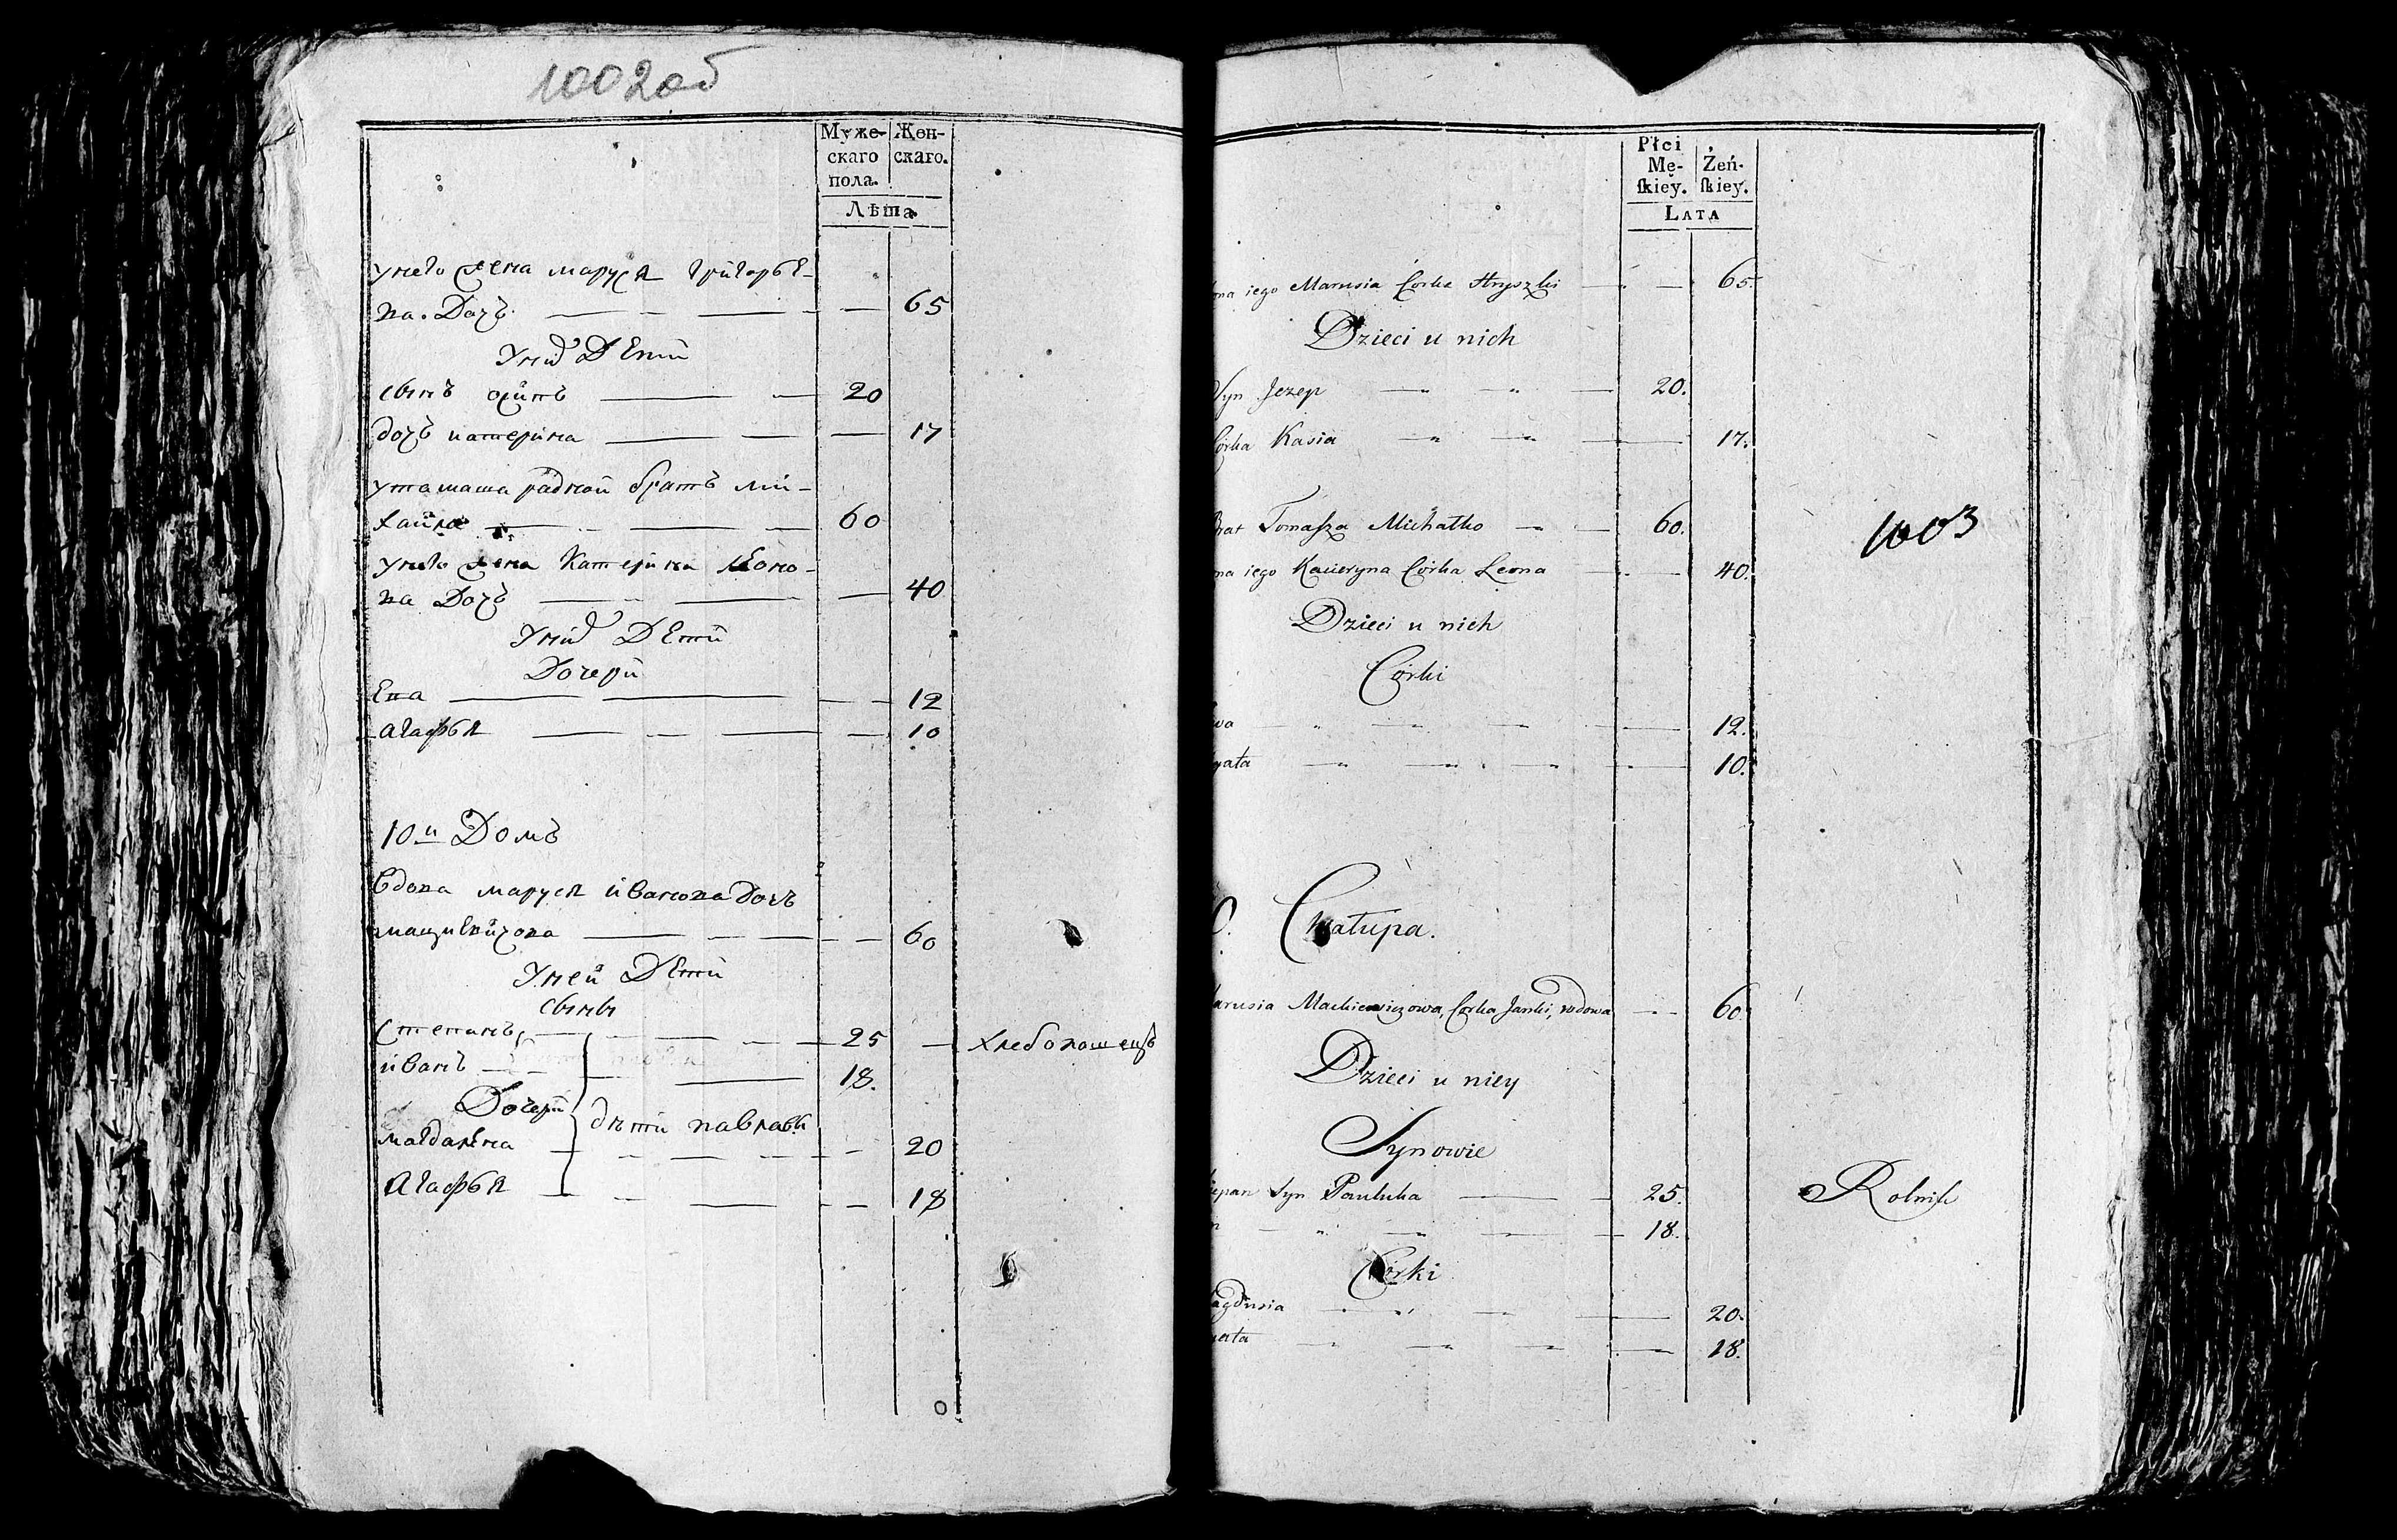 1002об
Муже- Жен-
скаго скаго.
пола.
Лѣта
унего жена маруся григорье-
ва. Дочъ 65
Уних Дети
сынъ осипъ 20
дочъ катерина 17
утамаша радной братъ ми-
хайла 60
унего жена Катерина леоно-
ва Дочъ 40
Уних Дети
Дочери
Ева 12
агафья 10
10й Домъ
вдова маруся иванова дочъ
мацкевичова 60
Уней Дети
сыны
степанъ 25 хлебопашецъ
иванъ 18.
Дочери
дѣти павлавы
магдалена 20
Агафья 18
Płci
Mę- Żeń-
ſkiey. ſkiey.
LATA
ona iego Marusia Corka Hryszki 65.
Dzieci u nich
Syn Jozep 20.
Corka Kasia 17.
Brat Tomaſza Michałko 60.
1003
na iego Kateryna Córka Leona 40.
Dzieci u nich
Córki
wa 12.
gata 10.
0. Chałupa.
arusia Mackiewiczowa, Corka Janki, wdowa 60.
Dzieci u niey
Synowie
tepan Syn Pauluka 25. Rolnik
n 18.
Córki
agdusia 20.
gata 18.